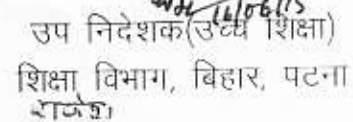 16/06/15
उप निदेशक(उच्च शिक्षा)
शिक्षा विभाग, बिहार, पटना
राजेश